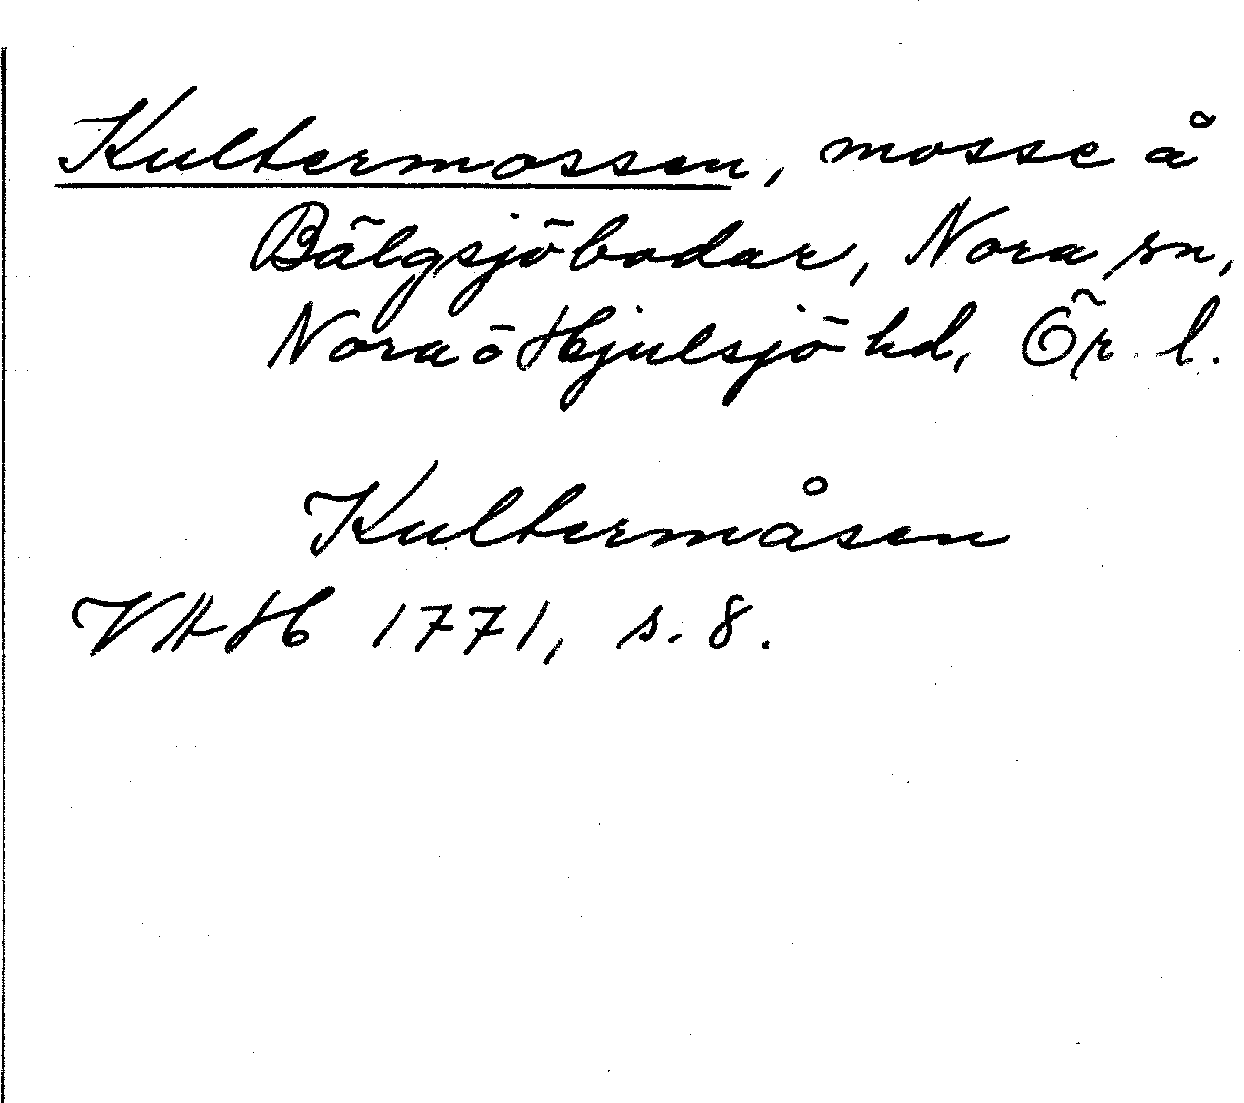 Kultermossen, mosse å
Bälgsjöbodar, Nora sn,
Nora ö Hjulsjö hd, Ör l.
Kultermåsen
VAH 1771, s. 8.